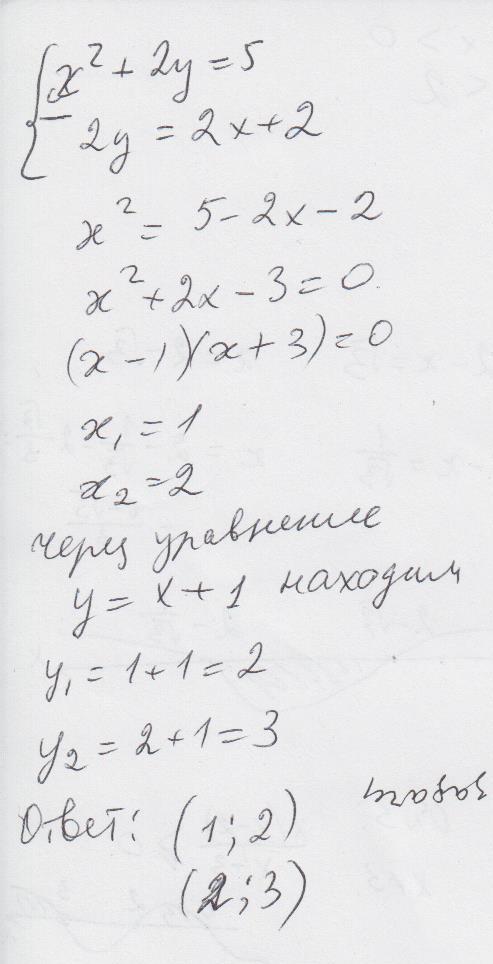 x² + 2y = 5
2y = 2x + 2
x² = 5 - 2x - 2
x² + 2x - 3 = 0
(x - 1)(x + 3) = 0
x₁ = 1
x₂ = 2
через уравнение
y = x + 1 находим
y₁ = 1 + 1 = 2
y₂ = 2 + 1 = 3
Ответ: (1; 2)
(2; 3)